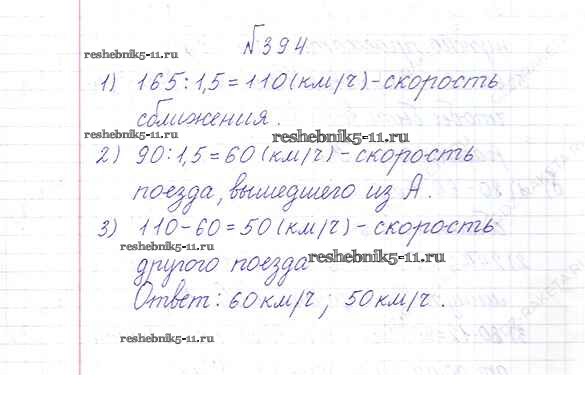 №394
reshebnik5-11.ru
1) 165:1,5=110(км/ч)-скорость
сближения.
reshebnik5-11.ru
2) 90:1,5=60(км/ч)-скорость
поезда, вышедшего из А.
reshebnik5-11.ru
3) 110-60=50(км/ч)-скорость
reshebnik5-11.ru
другого поезда
reshebnik5-11.ru
Ответ: 60км/ч; 50км/ч.
reshebnik5-11.ru